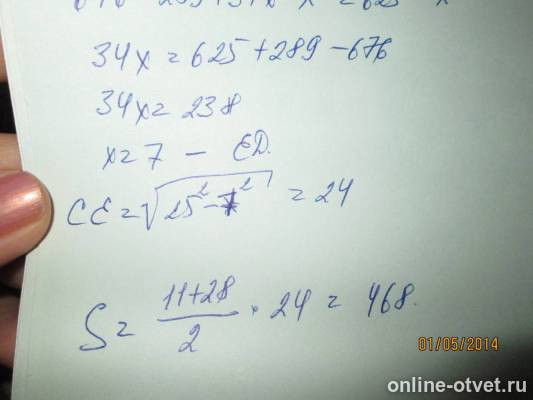 34x = 625 + 289 - 676
34x = 238
x = 7 - ED.
CE = √25² - 7² = 24
S = 11+28/2 · 24 = 468.
01/05/2014
online-otvet.ru